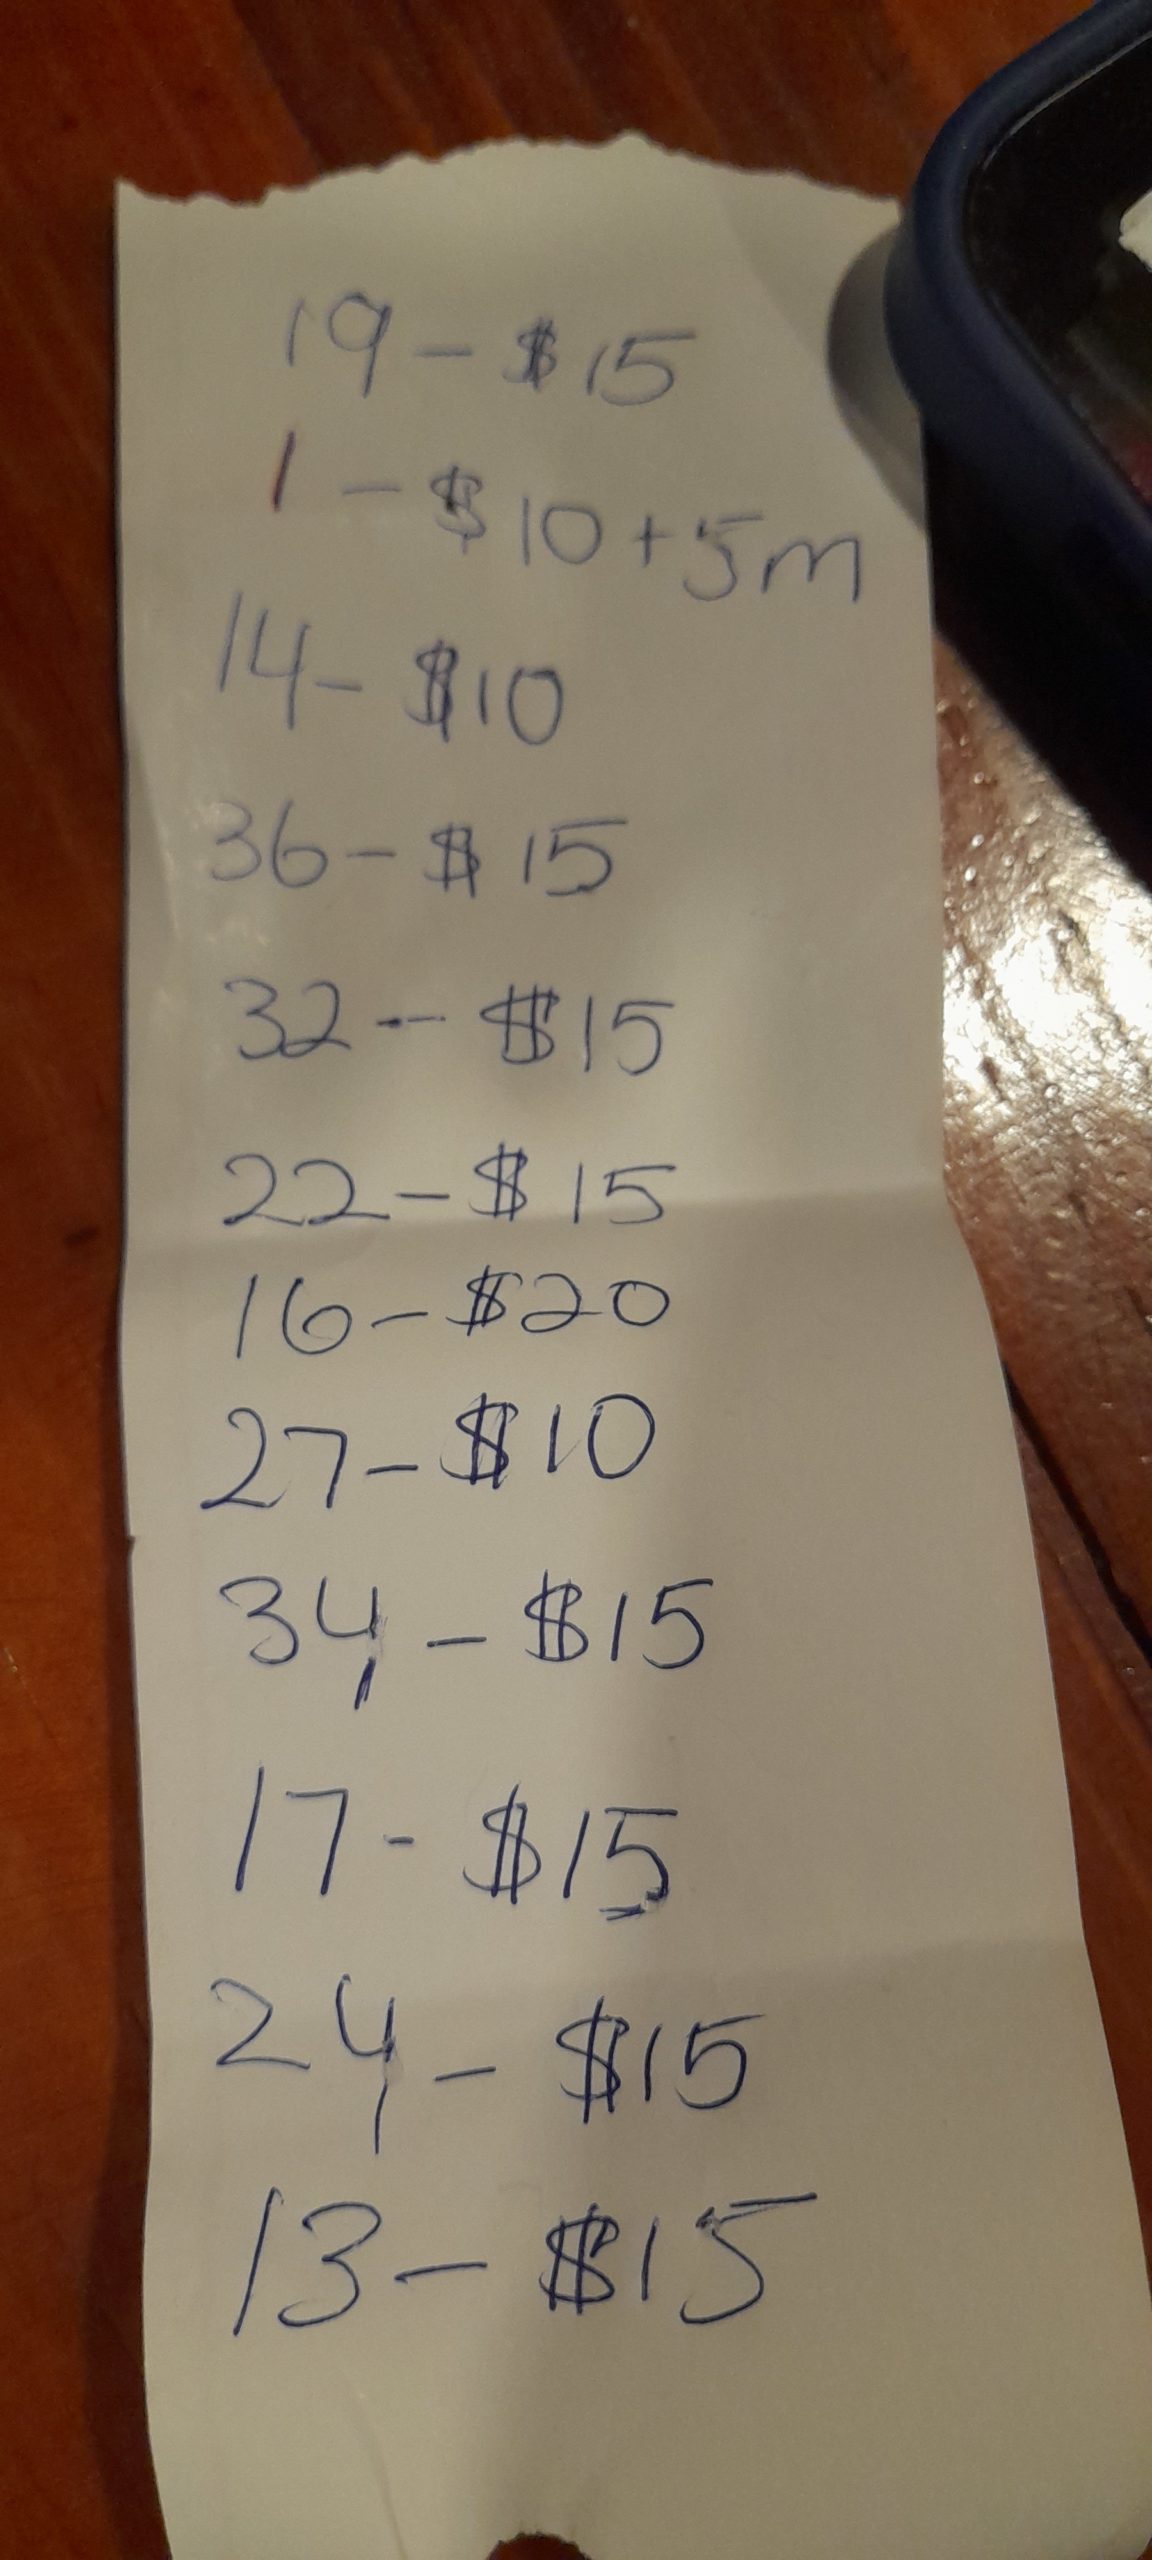 19 - $15
1 - $10 + 5m
14 - $10
36 - $15
32 - $15
22 - $15
16 - $20
27 - $10
34 - $15
17 - $15
24 - $15
13 - $15